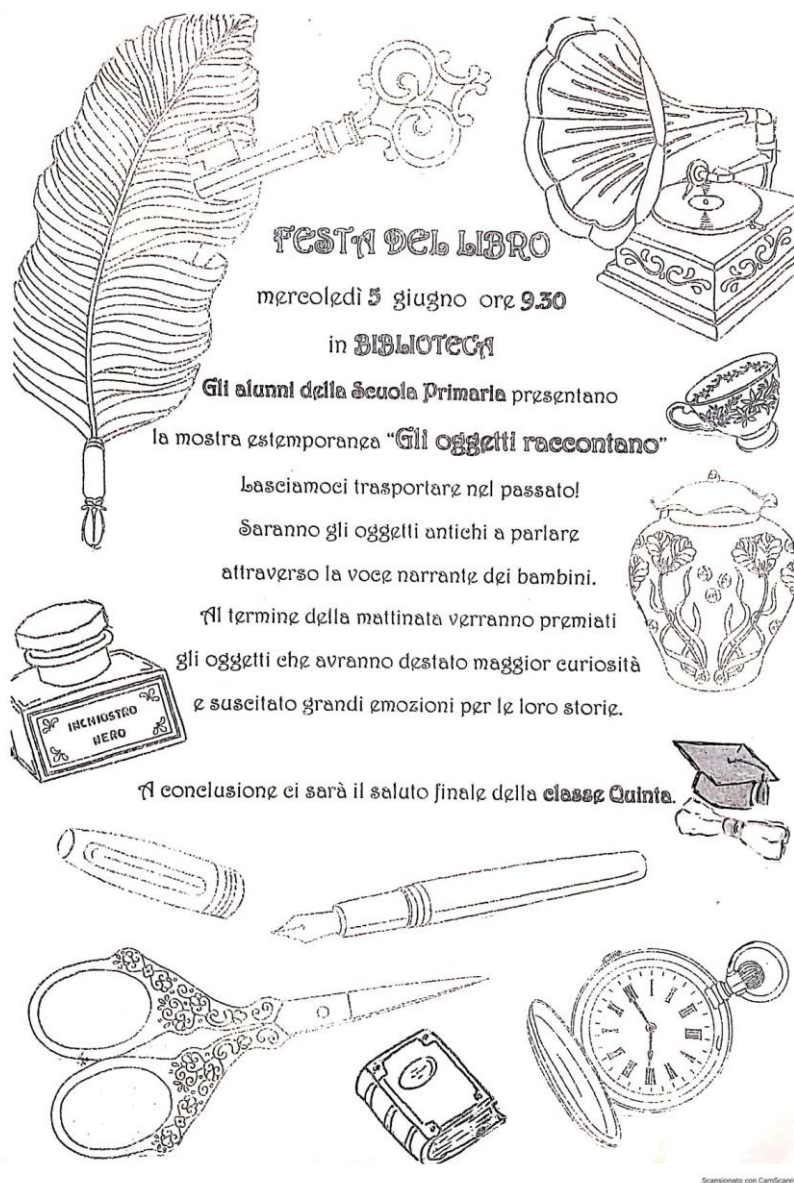 FESTA DEL LIBRO
mercoledì 5 giugno ore 9.30
in BIBLIOTECA
Gli alunni della Scuola Primaria presentano
la mostra estemporanea “Gli oggetti raccontano”
Lasciamoci trasportare nel passato!
Saranno gli oggetti antichi a parlare
attraverso la voce narrante dei bambini.
Al termine della mattinata verranno premiati
gli oggetti che avranno destato maggior curiosità
e suscitato grandi emozioni per le loro storie.
INCHIOSTRO
NERO
A conclusione ci sarà il saluto finale della classe Quinta.
Scansionato con CamScann